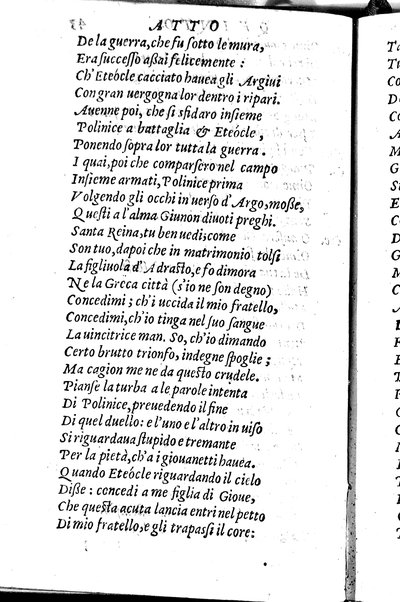 ATTO
De la guerra, che fu ſotto le mura,
Era ſucceſſo aßai felicemente :
Ch'Eteócle cacciato hauea gli Argiui
Con gran uergogna lor dentro i ripari.
Auenne poi, che ſi sfidaro inſieme
Polinice a battaglia & Eteócle ,
Ponendo ſopra lor tutta la guerra .
I quai, poi che comparſero nel campo
Inſieme armati, Polinice prima
Volgendo gli occhi in uerſo d'Argo, moſſe,
Queſti a l'alma Giunon diuoti preghi.
Santa Reina, tu ben uedi; come
Son tuo, dapoi che in matrimonio tolſi
La figliuola d'Adraſto, e fo dimora
Ne la Greca città (s'io ne ſon degno)
Concedimi ; ch'i uccida il mio fratello,
Concedimi, ch'io tinga nel ſuo ſangue
La uincitrice man. So, ch'io dimando
Certo brutto trionfo, indegne ſpoglie ;
Ma cagion me ne da queſto crudele.
Pianſe la turba a le parole intenta
Di Polinice, preuedendo il fine
Di quel duello: e l'uno e l'altro in uiſo
Si riguardaua ſtupido e tremante
Per la pietà, ch'a i giouanetti hauea.
Quando Eteócle riguardando il cielo
Diße : concedi a me figlia di Gioue,
Che queſta acuta lancia entri nel petto
Di mio fratello, e gli trapaſſi il core: